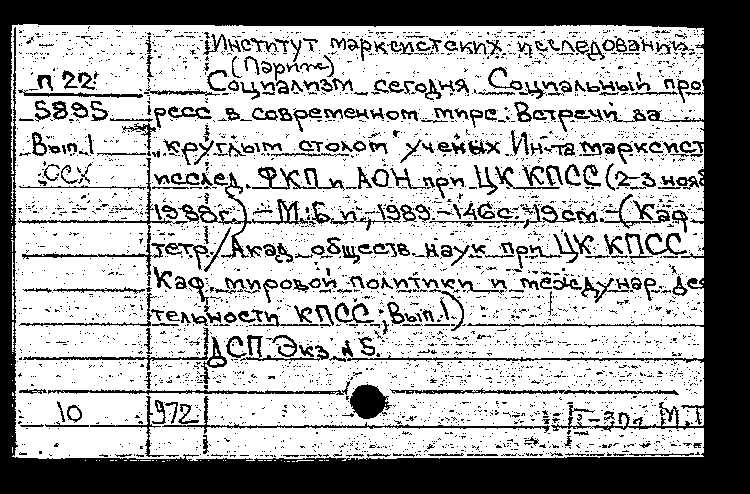 Институт марксистских исследований
(Париж)
п 22 Социализм сегодня. Социальный прог
5895 ресс в современном мире: Встречи за
Вып.1 „круглым столом" ученых Ин-та марксист
ОСХ исслед. ФКП и АОН при ЦК КПСС (2-3 нояб
1988г.) – М.: Б.и., 1989 – 146с.; 19см. – (Каф
тетр/Акад. обществ. наук при ЦК КПСС
Каф. мировой политики и междунар. дея
тельности КПСС; Вып.1.)
ДСП. Экз. № 5.
10 972